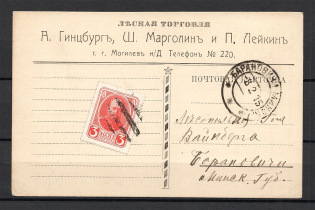 ЛѢСНАЯ ТОРГОВЛЯ
А. Гинцбургъ, Ш. Марголинъ и П. Лейкинъ
г. г. Могилевъ н/Д Телефонъ № 220.
ПОЧТОВАЯ КАРТОЧКА
БАРАНОВИЧИ
3 КОП 3
Вайнберга
Барановичи
Минск. Губ.